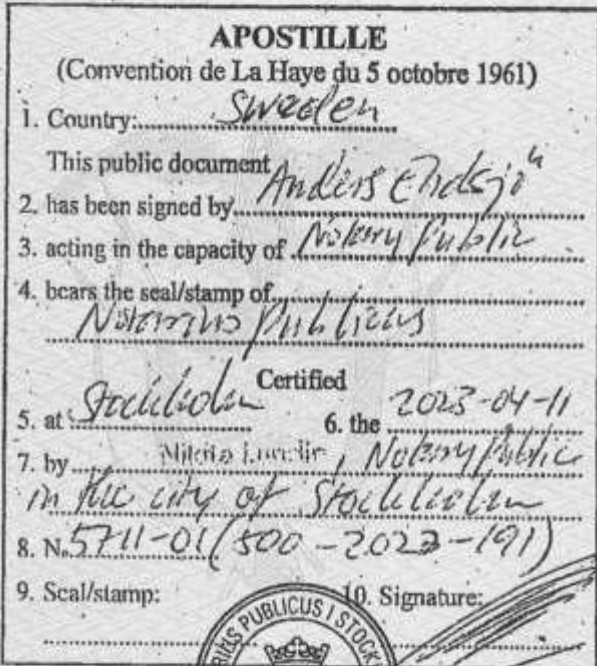 APOSTILLE
(Convention de La Haye du 5 octobre 1961)
1. Country: Sweden
This public document
2. has been signed by Anders
3. acting in the capacity of Notary Public
4. bears the seal/stamp of
Notarius Publicus
Certified
5. at Stockholm 6. the 2023-04-11
7. by Lundin, Notary Public
in the city of Stockholm
8. No 5711-01 (500-2023-191)
9. Seal/stamp: 10. Signature:
PUBLICUS I STOCK